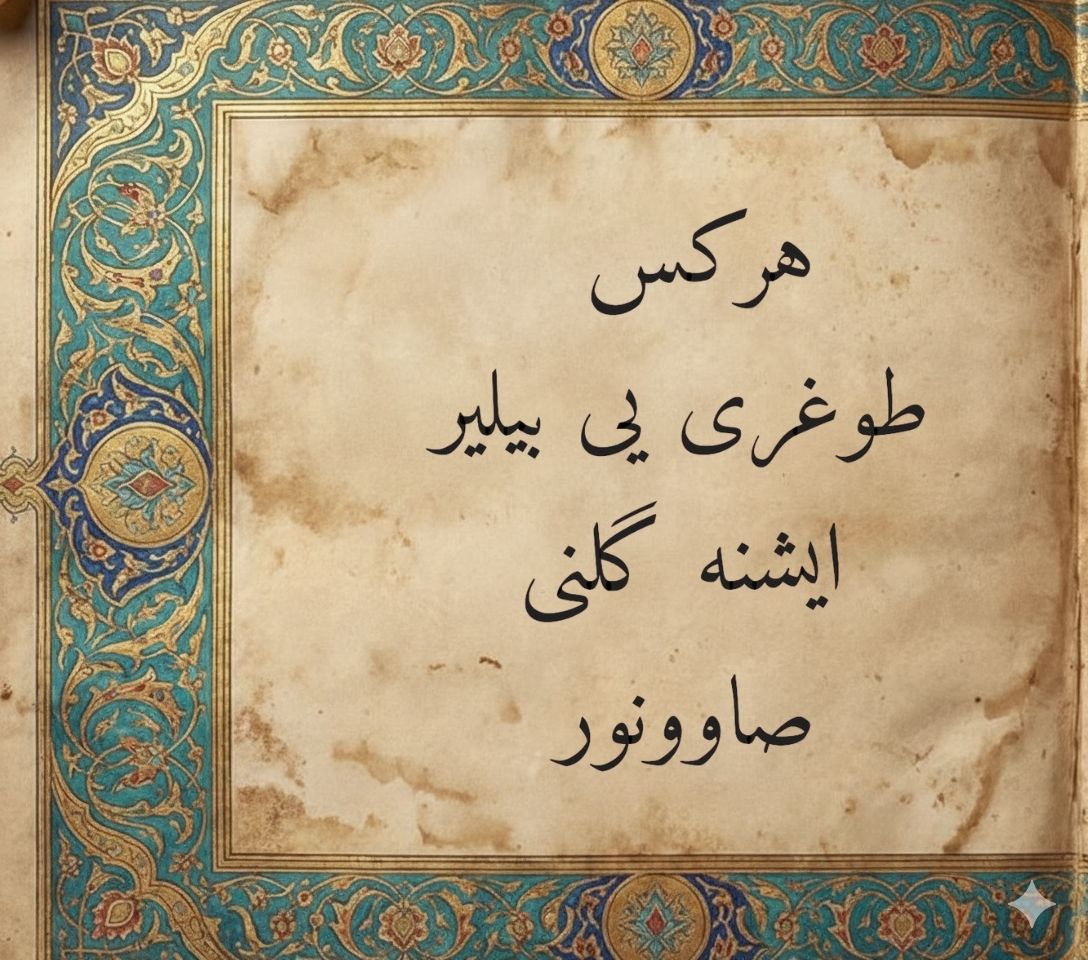 هر کس
طوغری یی بیلیر
ایشنه گلنی
صاوونور